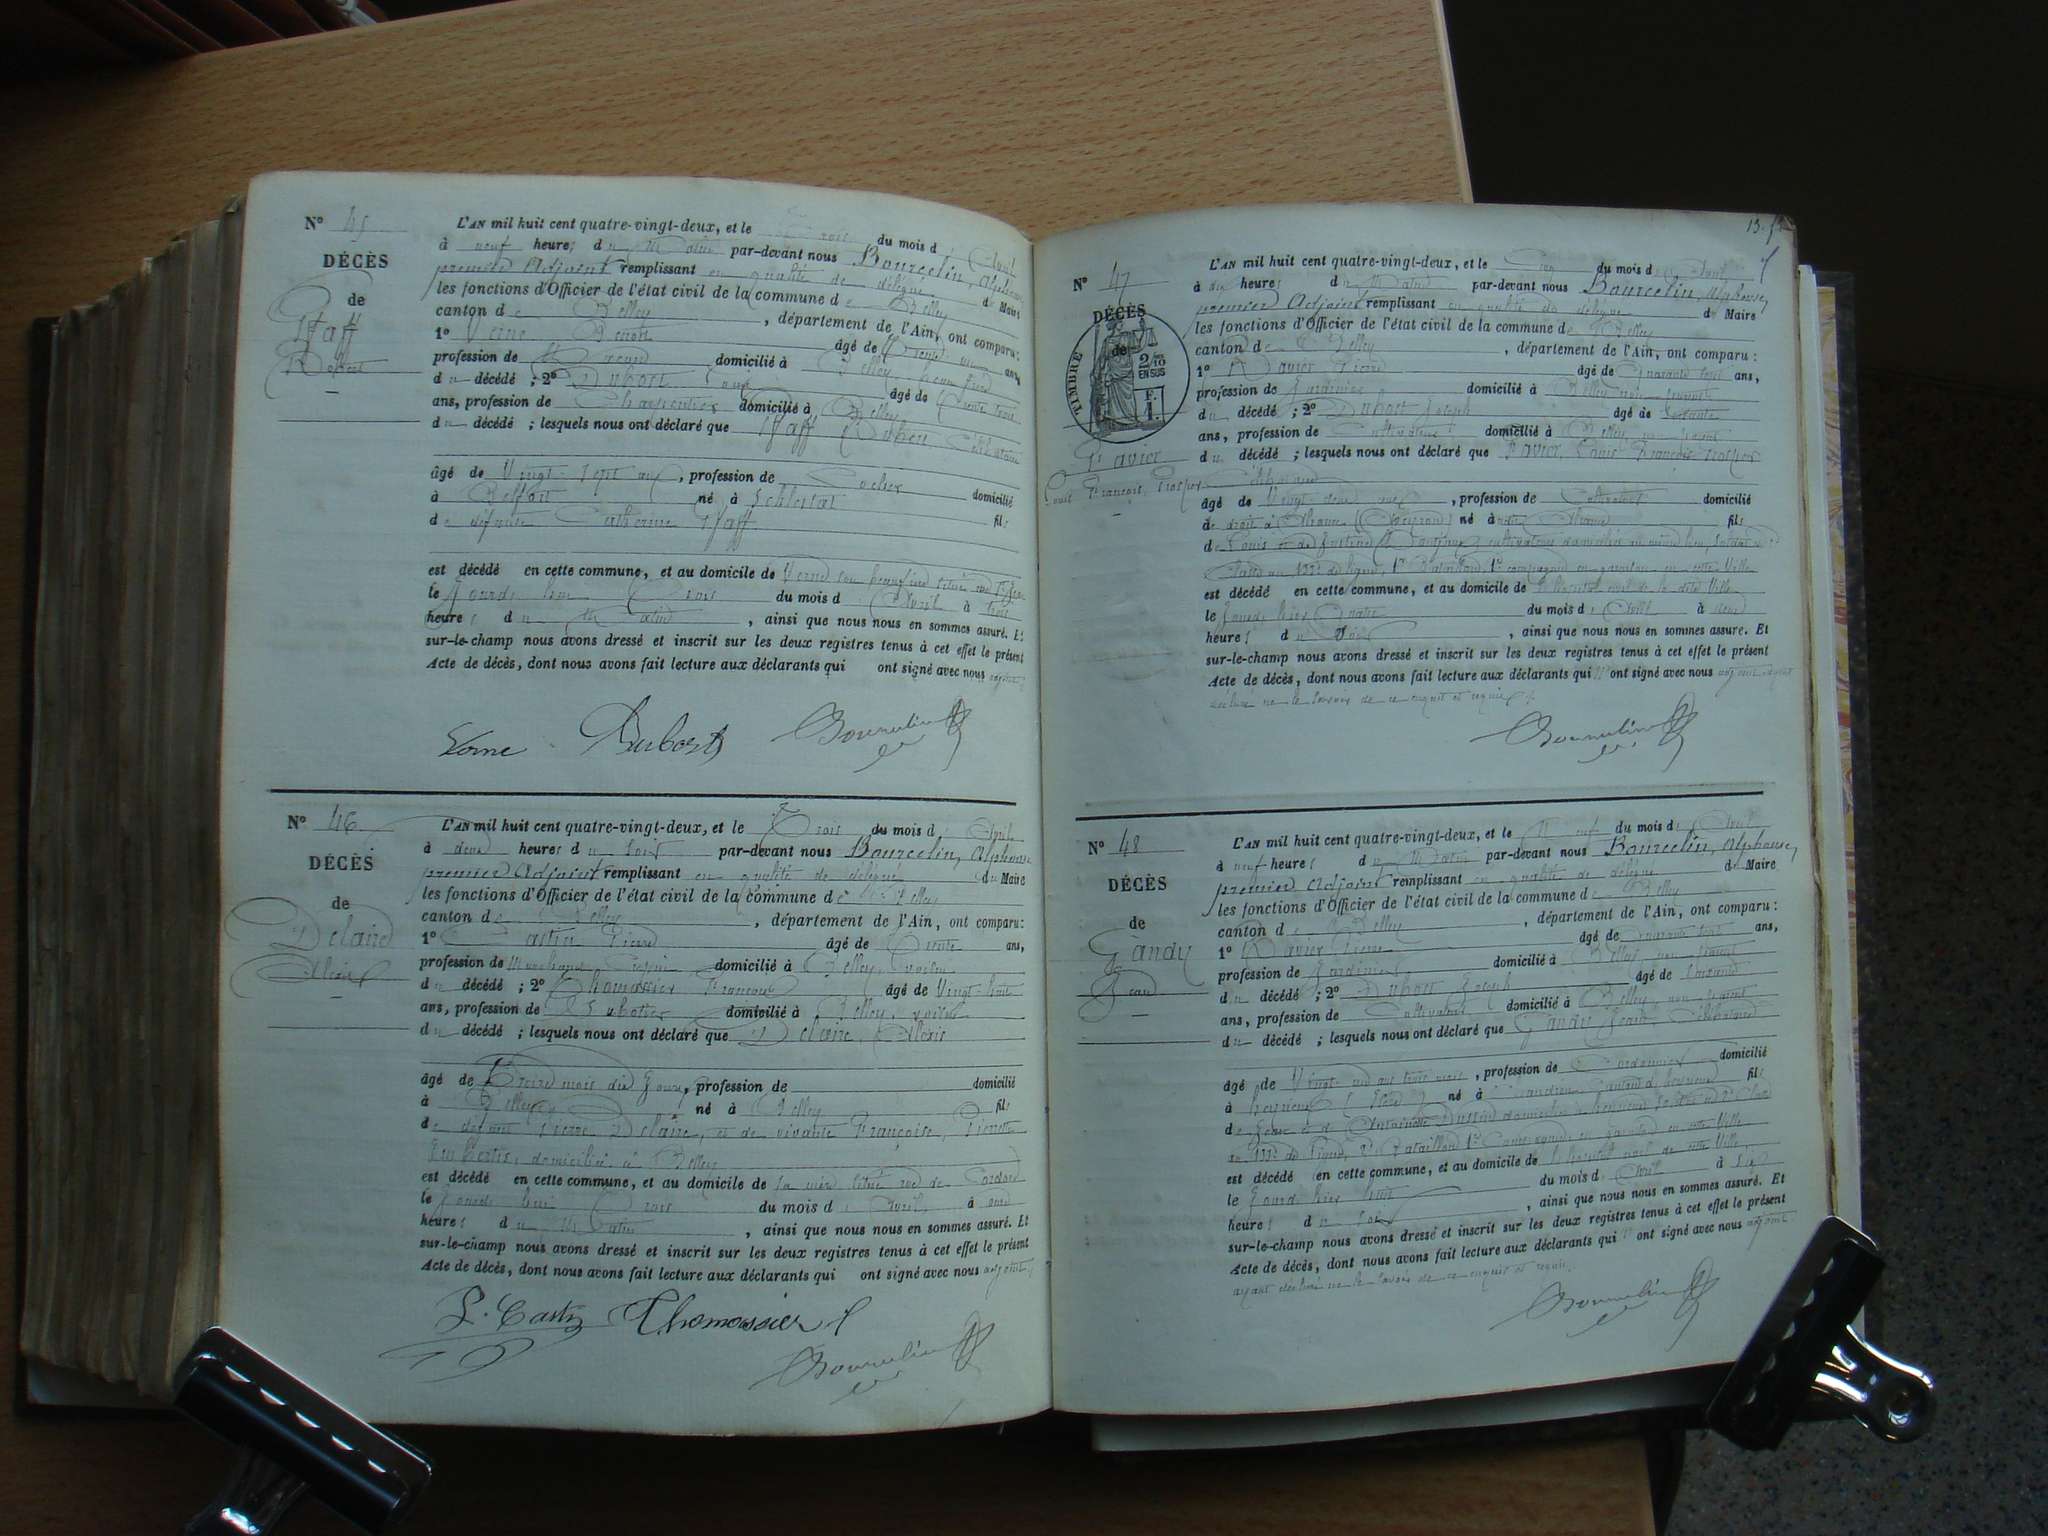 N° 45
DÉCÈS
de
Pfaff
Robert
L'AN mil huit cent quatre-vingt-deux, et le Trois du mois d' Avril
à neuf heures du Matin par-devant nous Bourcelin, Alphonse,
premier Adjoint remplissant en qualité de délégué du Maire
les fonctions d'Officier de l'état civil de la commune de Belley
canton de Belley, département de l'Ain, ont comparu :
1° Benoit âgé de Trente un ans,
profession de domicilié à Belley
du décédé ; 2° Dubost âgé de Trente trois
ans, profession de Charpentier domicilié à Belley
du décédé ; lesquels nous ont déclaré que Pfaff Célibataire
âgé de Vingt-sept ans, profession de Cocher domicilié
à Belfort né à Schlestat fils
de défunte Catherine Pfaff
est décédé en cette commune, et au domicile de
le Jourd'hui Trois du mois d' Avril à trois
heures du Matin, ainsi que nous nous en sommes assuré. Et
sur-le-champ nous avons dressé et inscrit sur les deux registres tenus à cet effet le présent
Acte de décès, dont nous avons fait lecture aux déclarants qui ont signé avec nous adjoint
Dubost
N° 46
DÉCÈS
de
Delaire
Alexis
L'AN mil huit cent quatre-vingt-deux, et le Trois du mois d' Avril
à deux heures du soir par-devant nous Bourcelin, Alphonse
premier Adjoint remplissant en qualité de délégué du Maire
les fonctions d'Officier de l'état civil de la commune de Belley
canton de Belley, département de l'Ain, ont comparu :
1° Castin Pierre âgé de Trente ans,
profession de Marchand domicilié à Belley, voisin
du décédé ; 2° Thomassier François âgé de Vingt-huit
ans, profession de Sabotier domicilié à Belley, voisin
du décédé ; lesquels nous ont déclaré que Delaire, Alexis
âgé de Treize mois dix jours, profession de domicilié
à Belley né à Belley fils
de défunt Pierre Delaire, et de vivante Françoise, Pierrette
domiciliée à Belley
est décédé en cette commune, et au domicile de sa mère située rue de
le Jourd'hui Trois du mois d' Avril, à onze
heures du Matin, ainsi que nous nous en sommes assuré. Et
sur-le-champ nous avons dressé et inscrit sur les deux registres tenus à cet effet le présent
Acte de décès, dont nous avons fait lecture aux déclarants qui ont signé avec nous adjoint
Thomassier
N° 47
DÉCÈS
de
TIMBRE
2/10 EN SUS
1 F.
Ravier
Louis François, Prosper
L'AN mil huit cent quatre-vingt-deux, et le Cinq du mois d' Avril
à dix heures du Matin par-devant nous Bourcelin, Alphonse,
premier Adjoint remplissant en qualité de délégué du Maire
les fonctions d'Officier de l'état civil de la commune de Belley
canton de Belley, département de l'Ain, ont comparu :
1° Ravier Pierre âgé de Quarante sept ans,
profession de Jardinier domicilié à Belley non parent
du décédé ; 2° Dubost Joseph âgé de Soixante
ans, profession de Cultivateur domicilié à Belley non parent
du décédé ; lesquels nous ont déclaré que Ravier, Louis François Prosper
Célibataire
âgé de Vingt deux ans, profession de Cultivateur domicilié
de droit à (Aveyron) né à fils
de Louis et de Justine cultivateurs domiciliés au même lieu, soldat de 2e
classe au 133e de ligne, 1er Bataillon, 1re compagnie en garnison en cette Ville
est décédé en cette commune, et au domicile de l'hôpital civil de la dite Ville
le Jour d'hier Quatre du mois d' Avril à deux
heures du soir, ainsi que nous nous en sommes assuré. Et
sur-le-champ nous avons dressé et inscrit sur les deux registres tenus à cet effet le présent
Acte de décès, dont nous avons fait lecture aux déclarants qui n' ont signé avec nous adjoint ayant
déclaré ne le savoir de ce enquis et requis
N° 48
DÉCÈS
de
Gandy
Jean
L'AN mil huit cent quatre-vingt-deux, et le Neuf du mois d' Avril
à neuf heures du Matin par-devant nous Bourcelin, Alphonse,
premier Adjoint remplissant en qualité de délégué du Maire
les fonctions d'Officier de l'état civil de la commune de Belley
canton de Belley, département de l'Ain, ont comparu :
1° Ravier, Pierre âgé de Quarante sept ans,
profession de Jardinier domicilié à Belley, non parent
du décédé ; 2° Dubost Joseph âgé de Soixante
ans, profession de Cultivateur domicilié à Belley, non parent
du décédé ; lesquels nous ont déclaré que Gandy Jean, Célibataire
âgé de Vingt ans trois mois, profession de Cordonnier domicilié
à Heyrieux (Isère) né à canton d'Heyrieux fils
de Jean et de Antoinette domiciliés à Heyrieux Soldat de 2e Classe
au 133e de Ligne, Bataillon 1re Compagnie en garnison en cette Ville
est décédé en cette commune, et au domicile de l'hôpital civil de cette Ville
le Jour d'hier huit du mois d' Avril à Six
heures du soir, ainsi que nous nous en sommes assuré. Et
sur-le-champ nous avons dressé et inscrit sur les deux registres tenus à cet effet le présent
Acte de décès, dont nous avons fait lecture aux déclarants qui n' ont signé avec nous adjoint
ayant déclaré ne le savoir de ce enquis et requis.